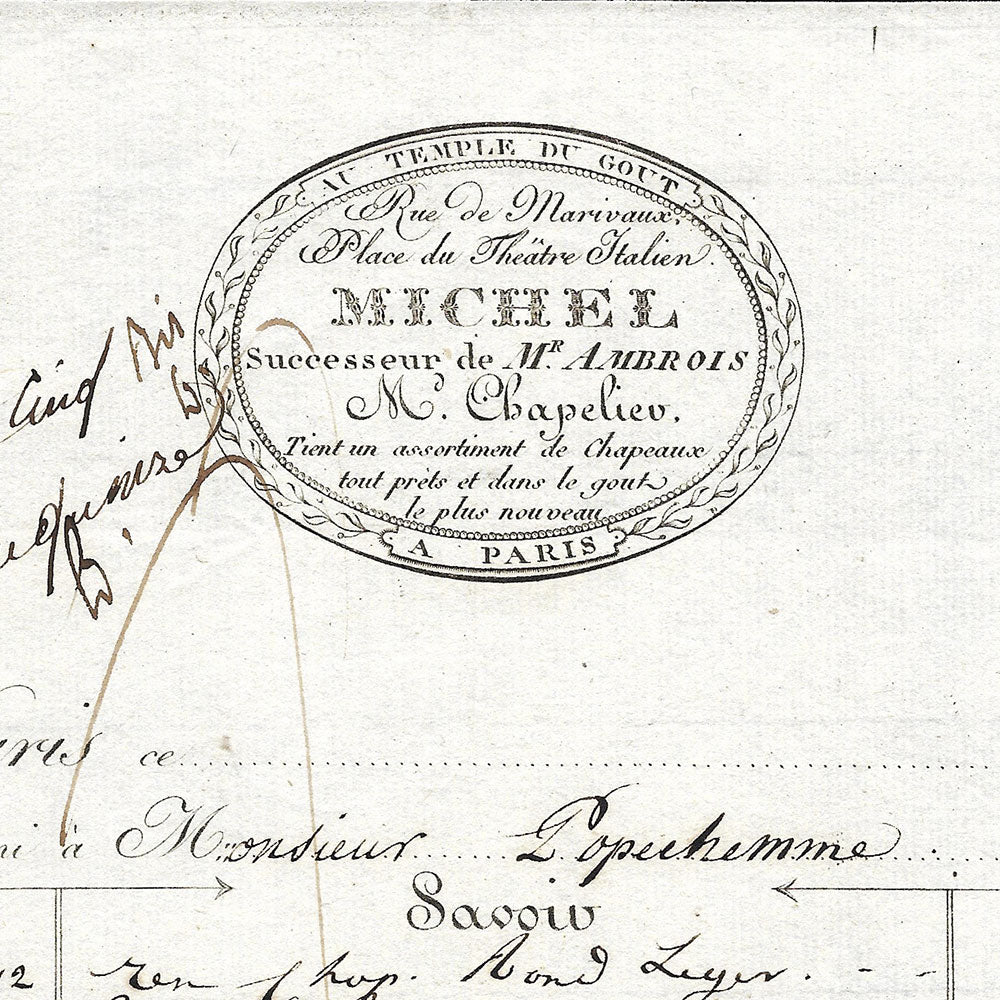 AU TEMPLE DU GOUT
Rue de Marivaux,
Place du Théâtre Italien.
MICHEL
Successeur de Mᴿ. AMBROIS
Mᵈ. Chapelier,
Tient un assortiment de Chapeaux
tout prèts et dans le gout
le plus nouveau
A PARIS
Cinq
quinze
aris ce
ni à Monsieur Popechemme
Savoir
chap. Rond Leger. - -